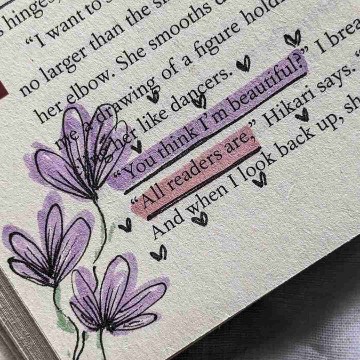 hinges,
"I want to s
no larger than the s
her elbow. She smooths o
a drawing of a figure hold
her like dancers.
"You think I'm beautiful?" I brea
"All readers are," Hikari says.
And when I look back up, sh